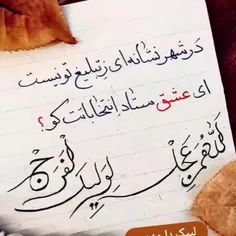 در شهر نشانه‌ای ز تبلیغ تو نیست
ای عشق ستاد انتخاباتت کو؟
اللهم عجل لولیک الفرج